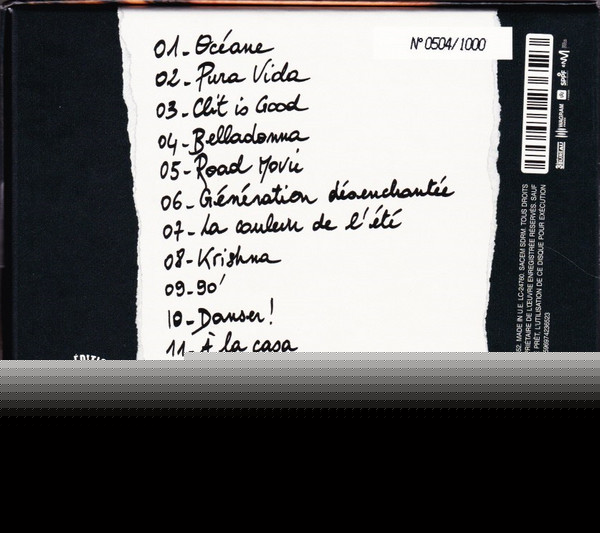 N° 0504/1000
01-Océane
02-Pura Vida
03-Clit is Good
04-Belladonna
05-Road Movie
06-Génération désenchantée
07-La couleur de l'été
08-Krishna
09-90'
10-Danser!
11-À la casa
ÉDITI
WAGRAM
SPPF
52. MADE IN U.E. LC-24760. SACEM SDRM. TOUS DROITS
PRIÉTAIRE DE L'ŒUVRE ENREGISTRÉE RÉSERVÉS. SAUF
E PRÊT, L'UTILISATION DE CE DISQUE POUR EXÉCUTION